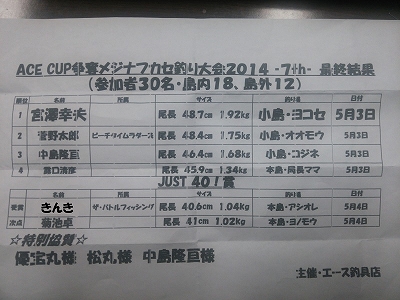 ACE CUP争奪メジナフカセ釣り大会2014 -7th- 最終結果
(参加者30名・島内18、島外12)
順位 名前 所属 サイズ 釣り座 日付
1 宮澤幸浜 尾長 48.7cm 1.92kg 小島・ヨコセ 5月3日
2 菅野太郎 ピーチタイムラダーズ 尾長 48.4cm 1.75kg 小島・オオモウ 5月3日
3 中島隆亘 尾長 46.4cm 1.68kg 小島・コジネ 5月3日
4 露口清彦 尾長 45.9cm 1.34kg 本島・局長ママ 5月3日
JUST 40!賞
名前 所属 サイズ 釣り座 日付
受賞 きんき ザ・バトルフィッシング 尾長 40.6cm 1.04kg 本島・アシオレ 5月4日
次点 菊池卓 尾長 41cm 1.02kg 本島・ヨノモウ 5月4日
☆特別協賛☆
優宝丸様 松丸様 中島隆亘様
主催・エース釣具店